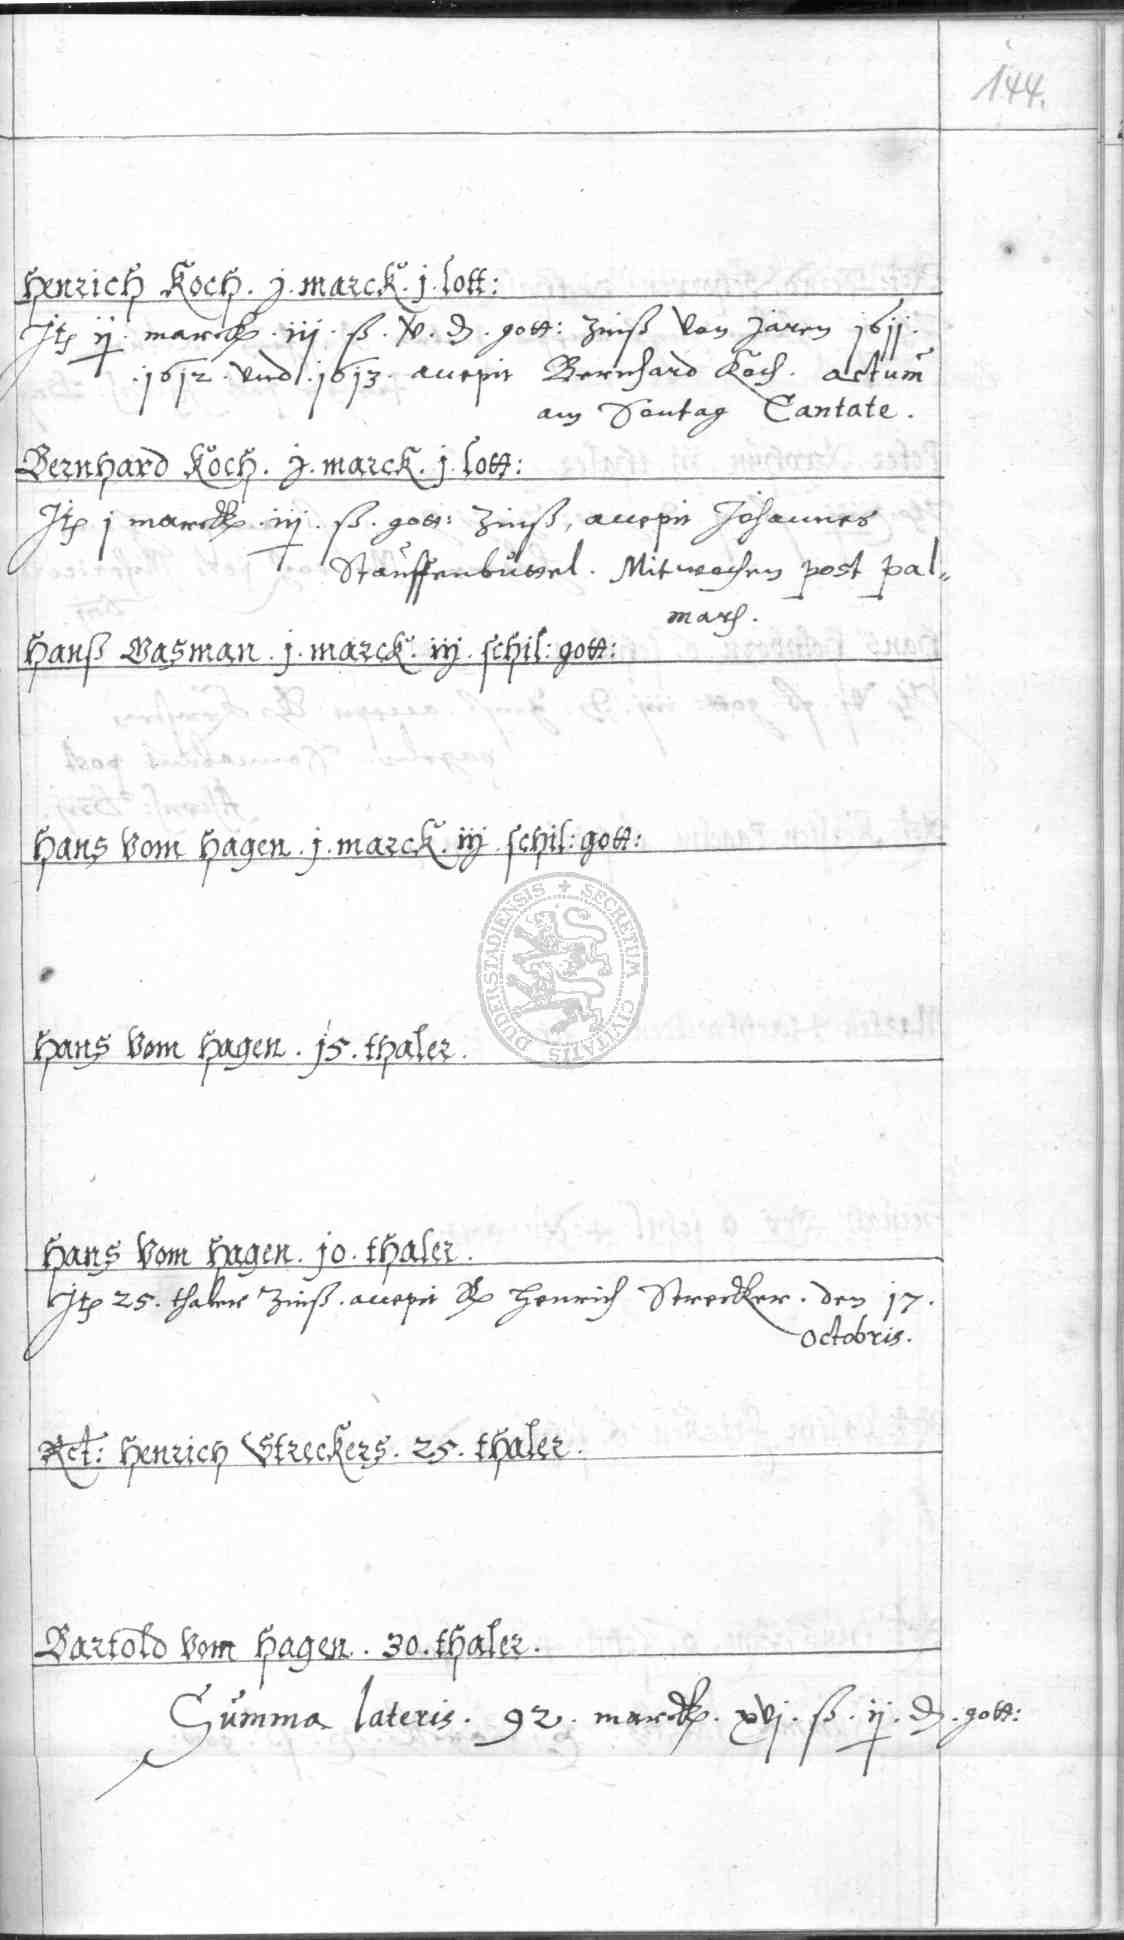 144.
Henrich Koch. j. marck. j. lott:
Jtẽ ij. marck. iij. ß. v. ₰. gott: Zinß Von Jaren 1611.
.1612. Vnd .1613. accepit Bernhard Koch. actum
am Sontag Cantate.
Bernhard Koch. j. marck. j. lott:
Jtẽ j marck. iij. ß. gott: Zinß, accepit Johannes
Stauffenbuttel. Mitwochen post pal„
marũ.
Hanß Vaßman. j. marck. iij. schil: gott:
Hans Vom Hagen. j. marck. iij. schil: gott:
SECRETUM CIVITATIS DUDERSTADIENSIS
Hans Vom Hagen. 15. thaler.
Hans Vom Hagen. 10. thaler.
Jtẽ 25. thaler Zinß. accepit R Henrich Strecker. den 17.
octobris.
Rct: Henrich Streckers. 25. thaler.
Bartold Vom Hagen. 30. thaler.
Summa lateris. 92. marck. xvj. ß. ij. ₰. gott: